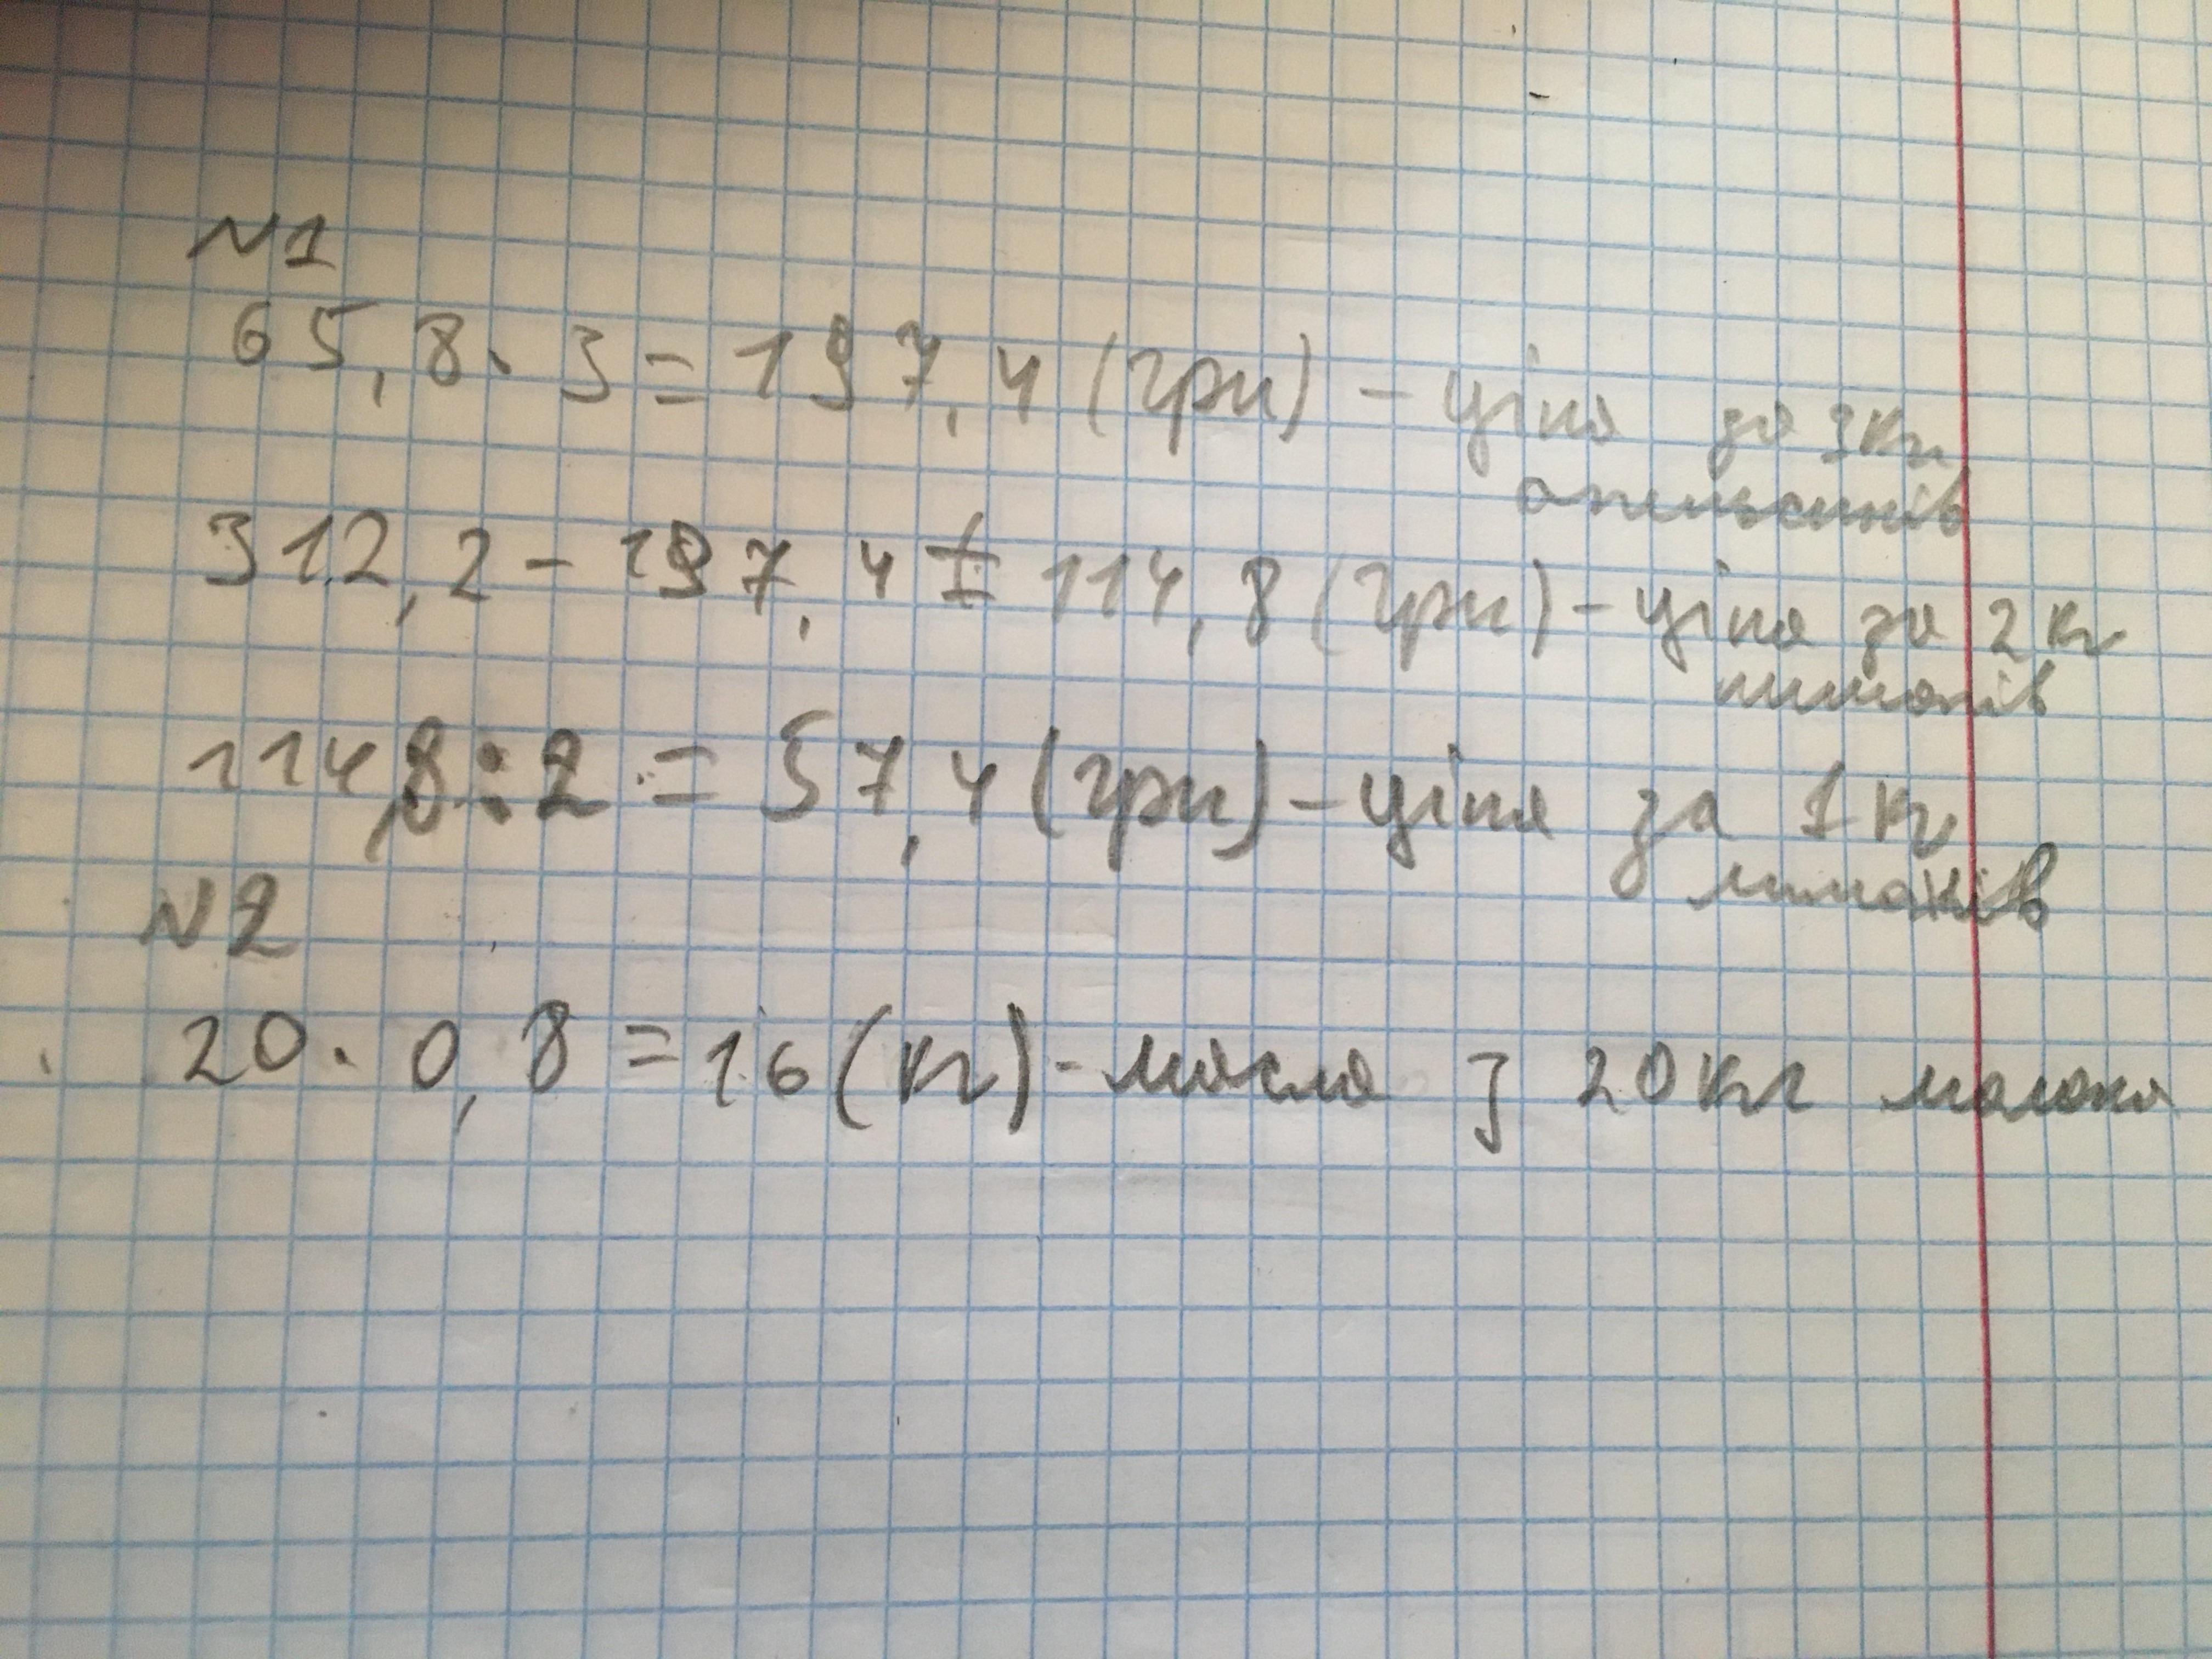 N1
65,8 · 3 = 197,4 (грн) - ціна за 3кг
апельсинів
312,2 - 197,4 = 114,8 (грн) - ціна за 2 кг
лимонів
114,8 : 2 = 57,4 (грн) - ціна за 1 кг
лимонів
N2
20 · 0,8 = 16 (кг) - масла з 20кг молока